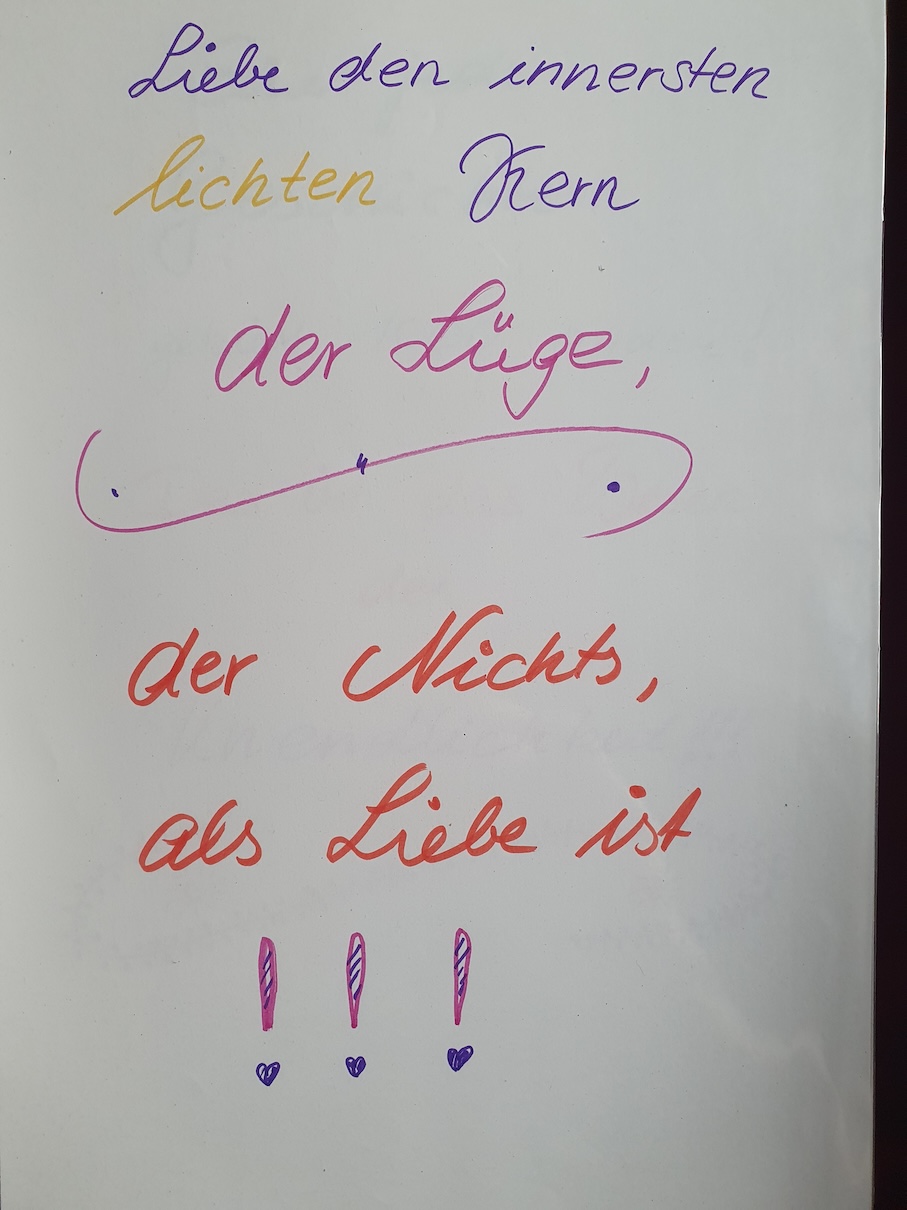 Liebe den innersten
lichten Kern
der Lüge,
der Nichts,
als Liebe ist
!!!